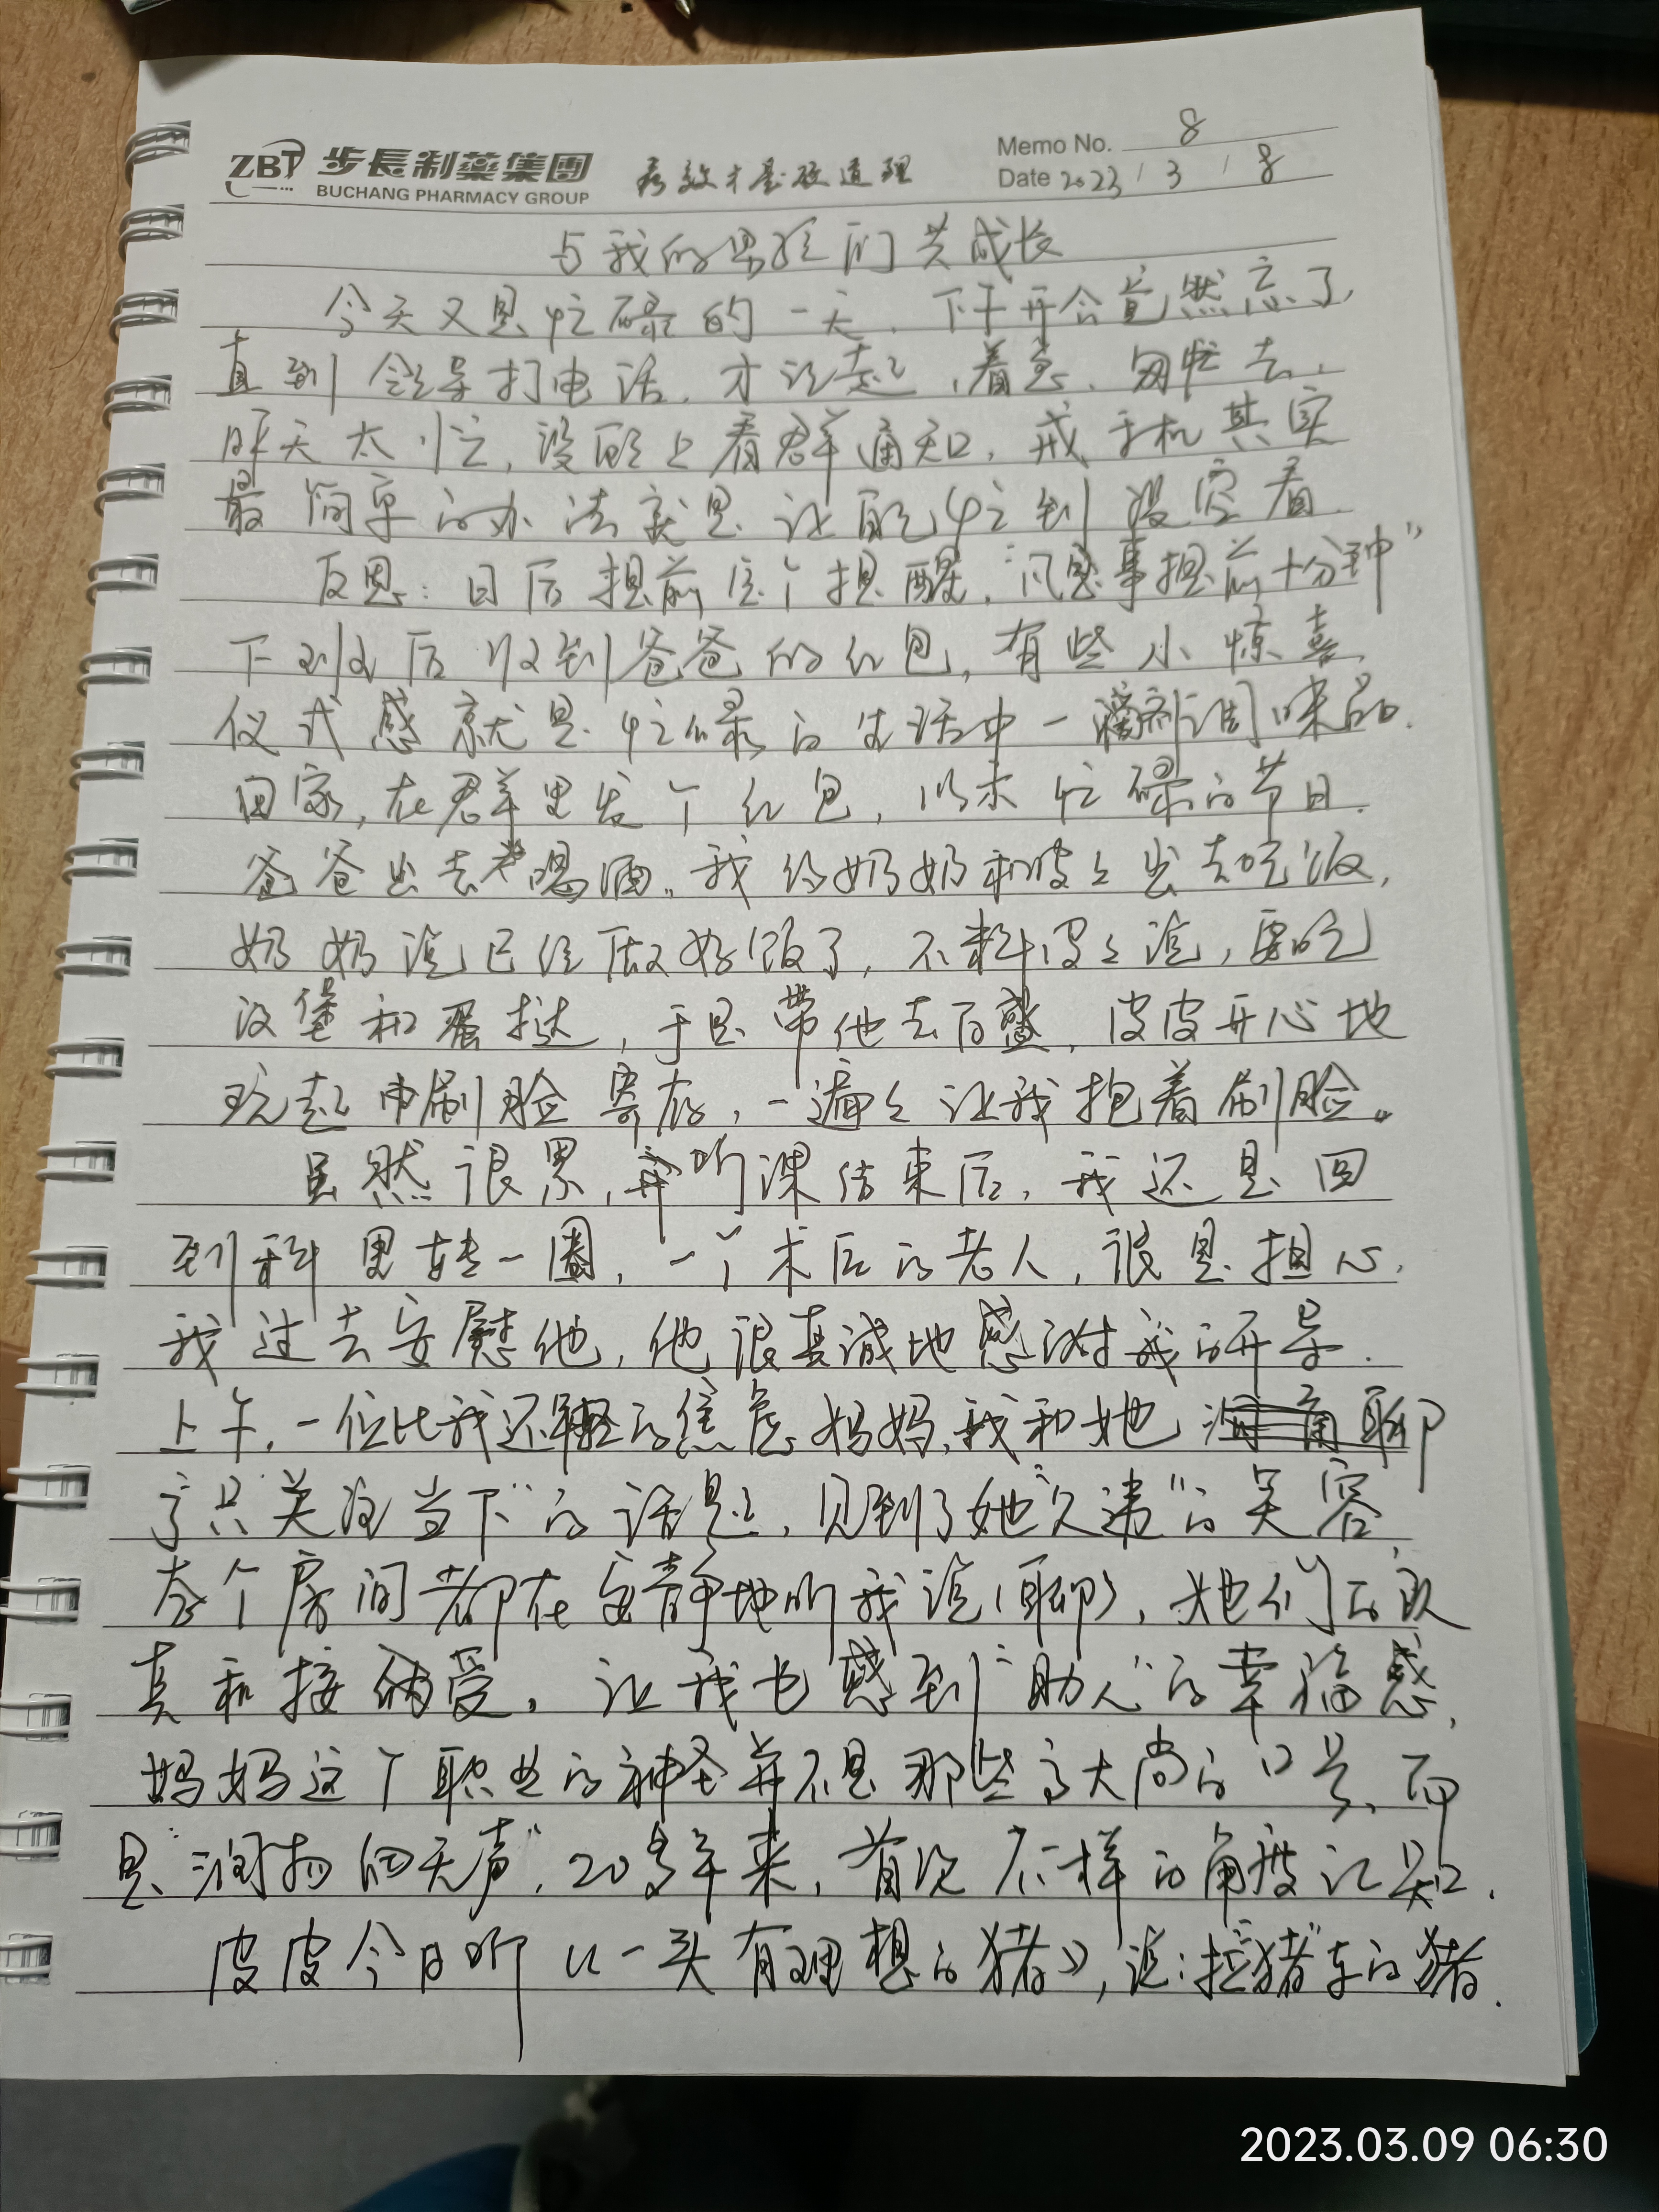 ZBT 步長制藥集團
BUCHANG PHARMACY GROUP
有效才是硬道理
Memo No. 8
Date 2023 / 3 / 8
与我的男孩们共成长
今天又是忙碌的一天，下午开会竟然忘了，
直到领导打电话，才记起，着急，匆忙去，
昨天太忙，没顾上看群通知，戒手机其实
最简单的办法就是让自己忙到没空看
反思：日后提前定个提醒，"凡是事提前十分钟"
下班后收到爸爸的红包，有些小惊喜，
仪式感就是忙碌的生活中一剂调味品.
回家，在群里发个红包，以示忙碌的节日.
爸爸出去喝酒。我约奶奶和皮皮出去吃饭，
奶奶说已经做好饭了，不料皮皮说，要吃
汉堡和蛋挞，于是带他去百盛，皮皮开心地
玩起刷脸寄存，一遍遍让我抱着刷脸。
虽然很累，听课结束后，我还是回
到科里转一圈，一个术后的老人，很是担心，
我过去安慰他，他很真诚地感谢我的开导.
上午，一位比我还年轻的焦虑妈妈，我和她聊
了"只关注当下"的话题，见到了她"久违"的笑容，
各个房间都在安静地听我说（聊），她们的认
真和接受，让我也感到"助人"的幸福感，
妈妈这个职业的神圣并不是那些高大尚的口号，而
是"润物细无声"，20多年来，首次不一样的角度认知.
皮皮今日听《一头有理想的猪》，说：拉"猪"车的猪.
2023.03.09 06:30